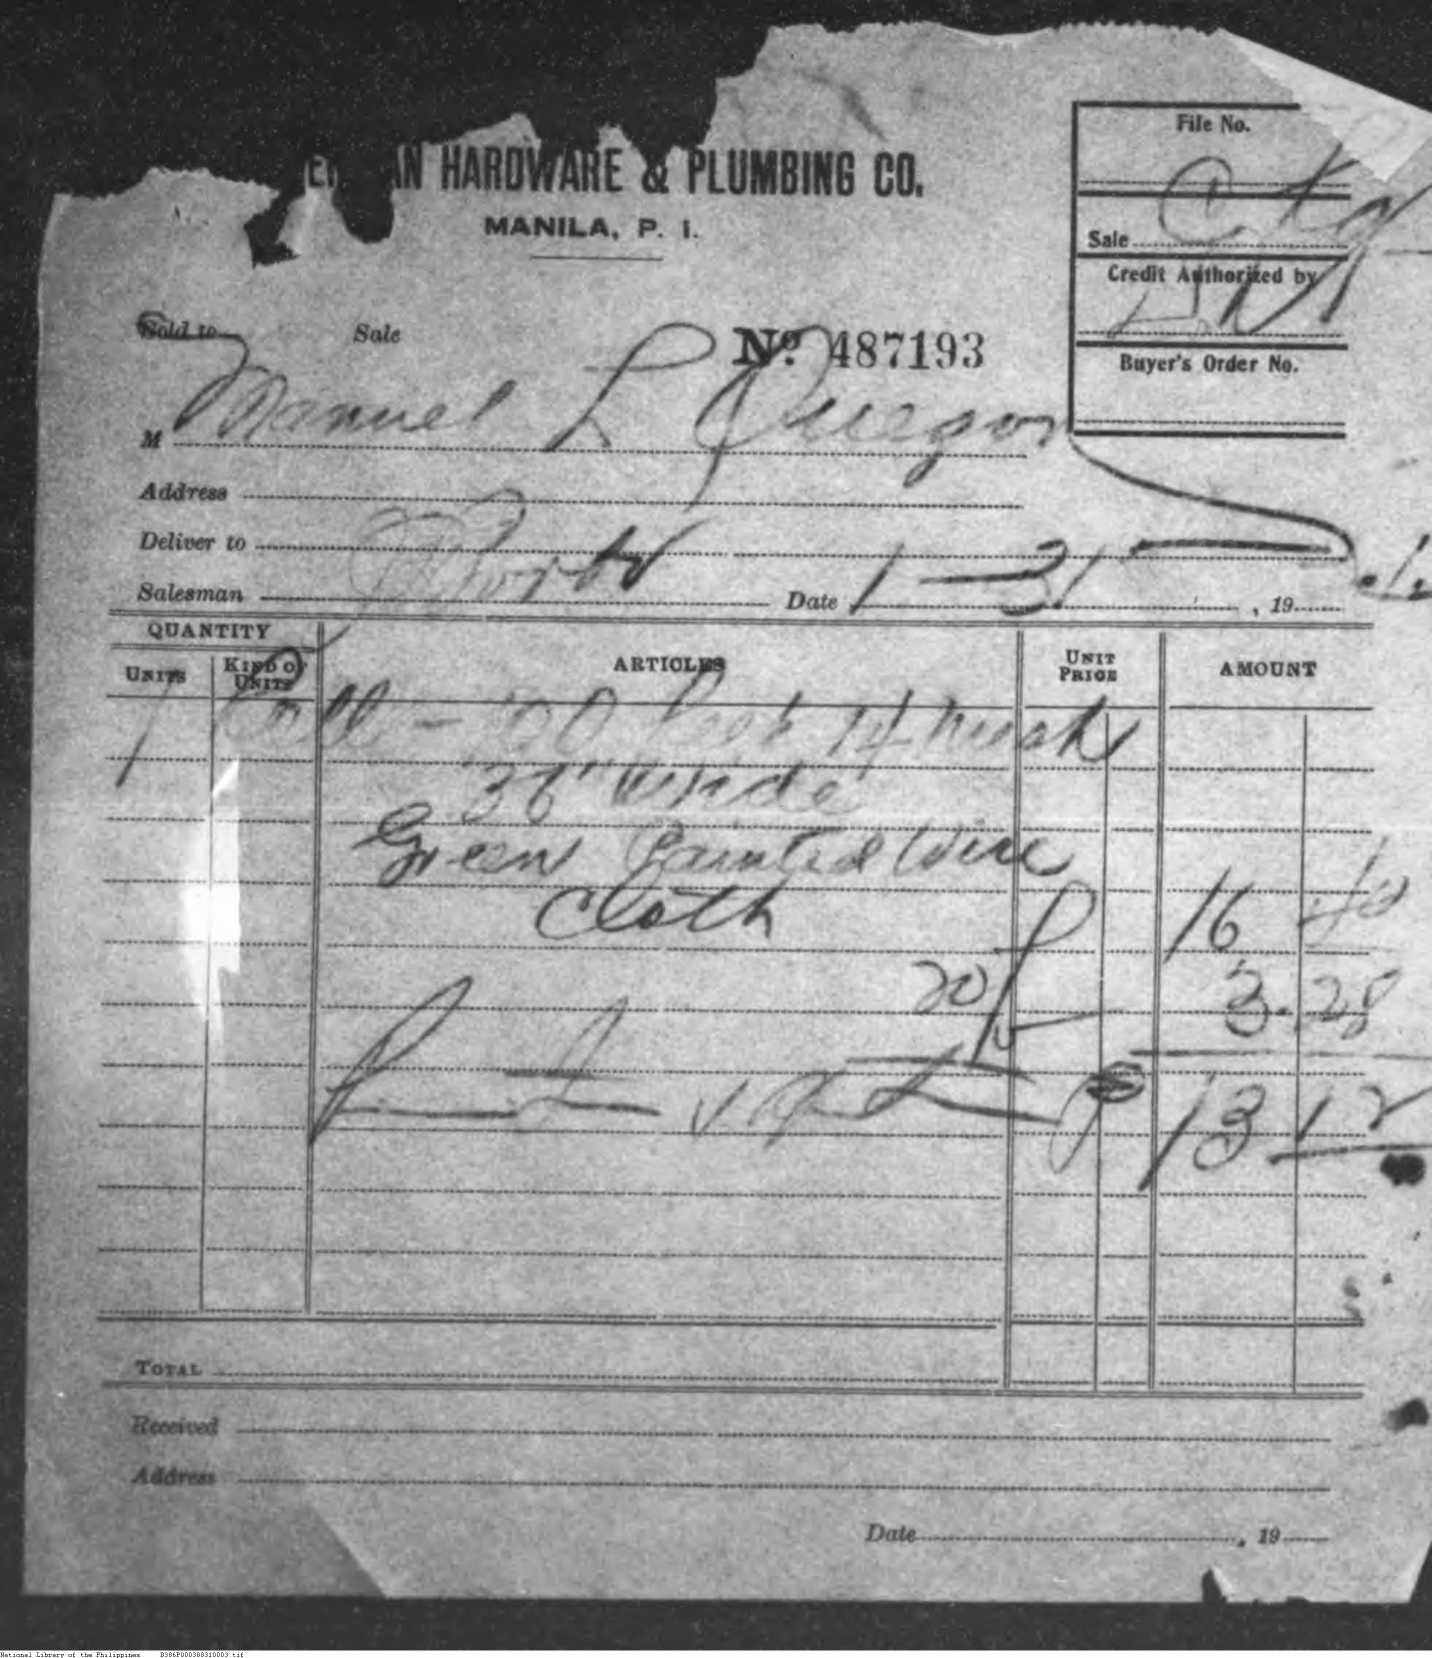 HARDWARE & PLUMBING CO.
MANILA, P. I.
File No.
Sale
Credit Authorized by
Buyer's Order No.
Sold to Sale No. 487193
M Manuel L Quezon
Address
Deliver to
Salesman Date 1-31 , 19
QUANTITY
UNITS KIND OF UNITS ARTICLES UNIT PRICE AMOUNT
1 Roll - 100 feet 14 mesh
36" wide
Green Painted Wire
Cloth 16 40
20% 3.28
13 12
TOTAL
Received
Address
Date , 19
National Library of the Philippines B386P000380310003.tif